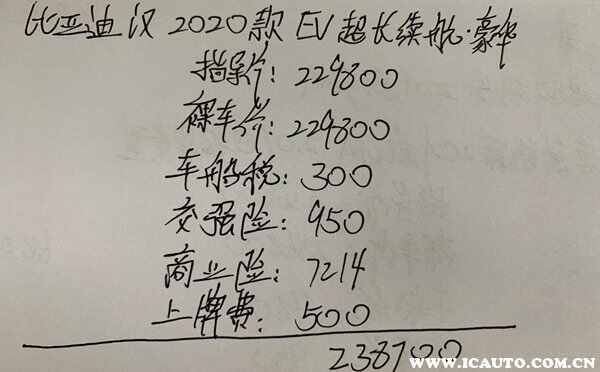 比亚迪汉 2020款 EV 超长续航·豪华
指导价: 229800
裸车价: 229800
车船税: 300
交强险: 950
商业险: 7214
上牌费: 500
238700
WWW.ICAUTO.COM.CN